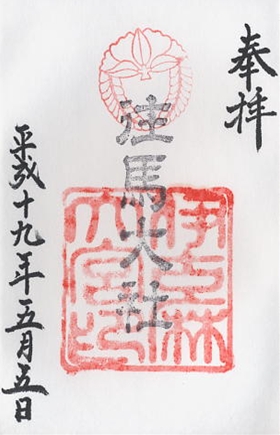 奉拝
往馬大社
平成十九年五月五日